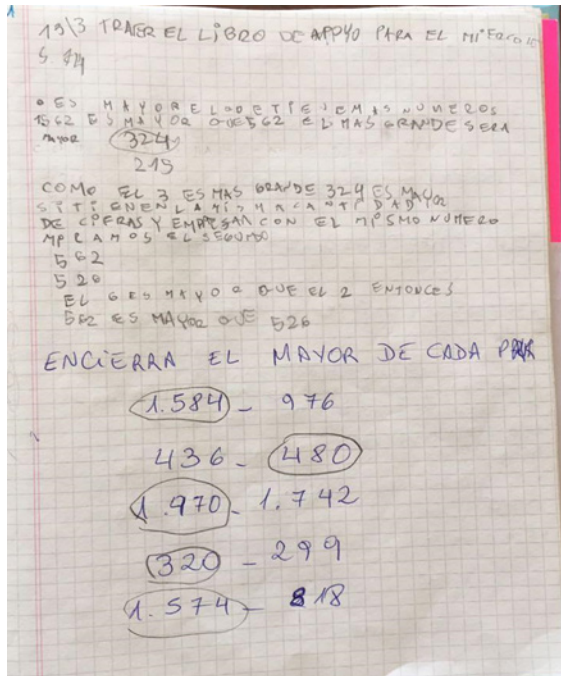 19/3 TRAER EL LIBRO DE APOYO PARA EL MIERCOLES
• ES MAYOR EL QUE TIENE MAS NUMEROS
1562 ES MAYOR QUE 562 EL MAS GRANDE SERA
mayor 324
215
COMO EL 3 ES MAS GRANDE 324 ES MAYOR
SI TIENEN LA MISMA CANTIDAD
DE CIFRAS Y EMPIEZAN CON EL MISMO NUMERO
MIRAMOS EL SEGUNDO
562
526
EL 6 ES MAYOR QUE EL 2 ENTONCES
562 ES MAYOR QUE 526
ENCIERRA EL MAYOR DE CADA PAR
1.584 - 976
436 - 480
1.970 - 1.742
320 - 299
1.574 - 818